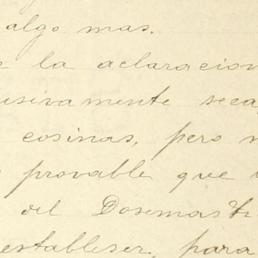 algo mas.
la aclaracion
usivamente seca
cosinas, pero
provable que
del Dosemasti
estableser, para